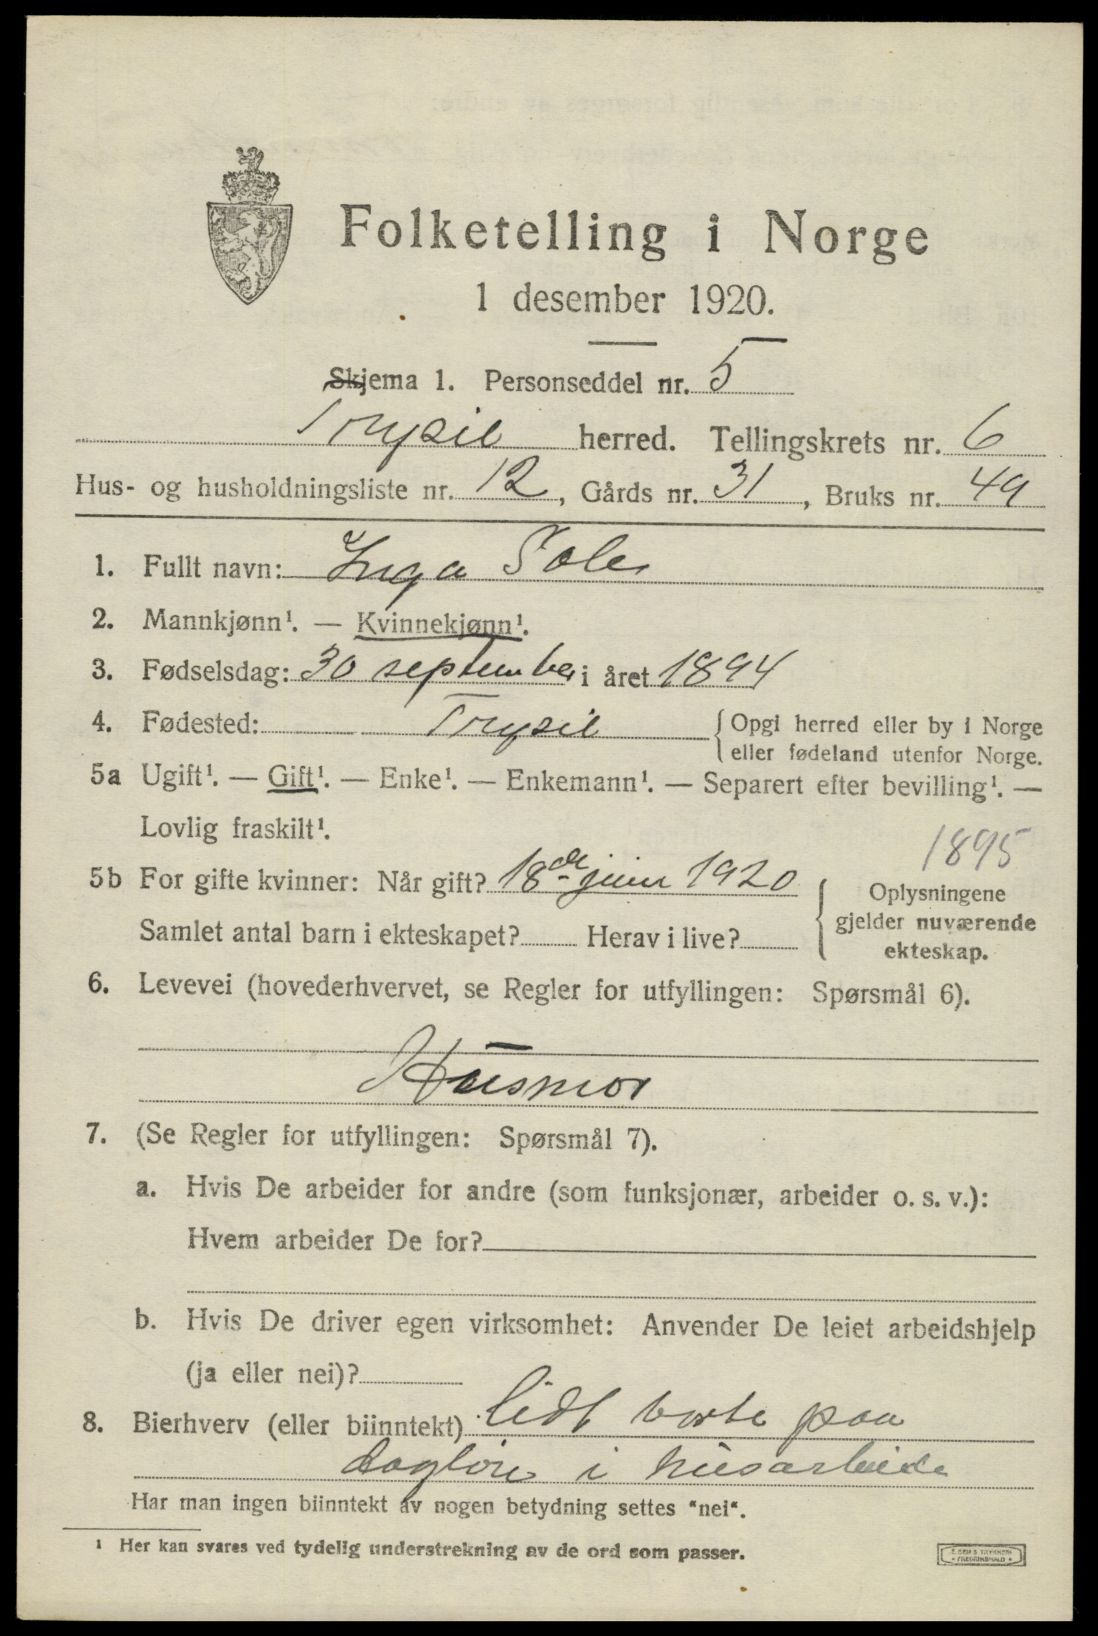 Folketelling i Norge
1 desember 1920.
Skjema 1. Personseddel nr. 5
Trysil herred. Tellingskrets nr. 6
Hus- og husholdningsliste nr. 12, Gårds nr. 31, Bruks nr. 49
1. Fullt navn: Inga
2. Mannkjønn¹. — Kvinnekjønn¹.
3. Fødselsdag: 30 september i året 1894
4. Fødested: Trysil {Opgi herred eller by i Norge
eller fødeland utenfor Norge.
5a Ugift¹. — Gift¹. — Enke¹. — Enkemann¹. — Separert efter bevilling¹. —
Lovlig fraskilt¹.
1895
5b For gifte kvinner: Når gift? 18de juni 1920
Samlet antal barn i ekteskapet? Herav i live?
{Oplysningene
gjelder nuværende
ekteskap.
6. Levevei (hovederhvervet, se Regler for utfyllingen: Spørsmål 6).
Husmor
7. (Se Regler for utfyllingen: Spørsmål 7).
a. Hvis De arbeider for andre (som funksjonær, arbeider o. s. v.):
Hvem arbeider De for?
b. Hvis De driver egen virksomhet: Anvender De leiet arbeidshjelp
(ja eller nei)?
8. Bierhverv (eller biinntekt) lidt borte paa
i husarbeide
Har man ingen biinntekt av nogen betydning settes "nei".
¹ Her kan svares ved tydelig understrekning av de ord som passer.